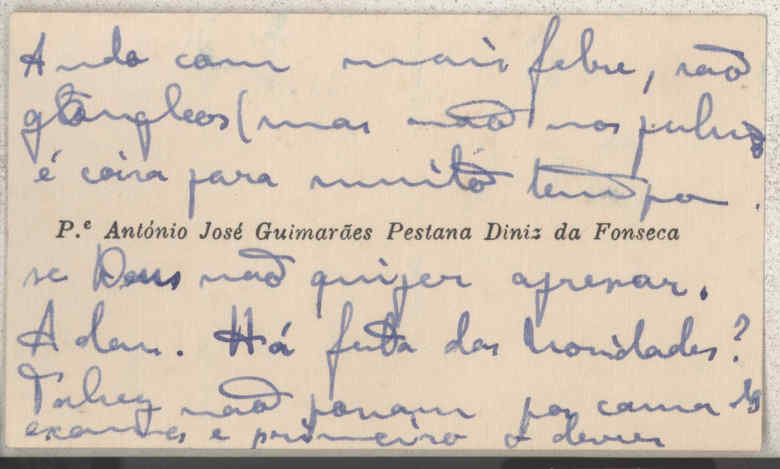 Ando com mais febre, são
gânglios (mas não nos pulmões
é coisa para muito tempo.
P.e António José Guimarães Pestana Diniz da Fonseca
se Deus não quizer apressar.
Adeus. Há festa das novidades?
Talvez não possam por causa
exames e primeiro o dever